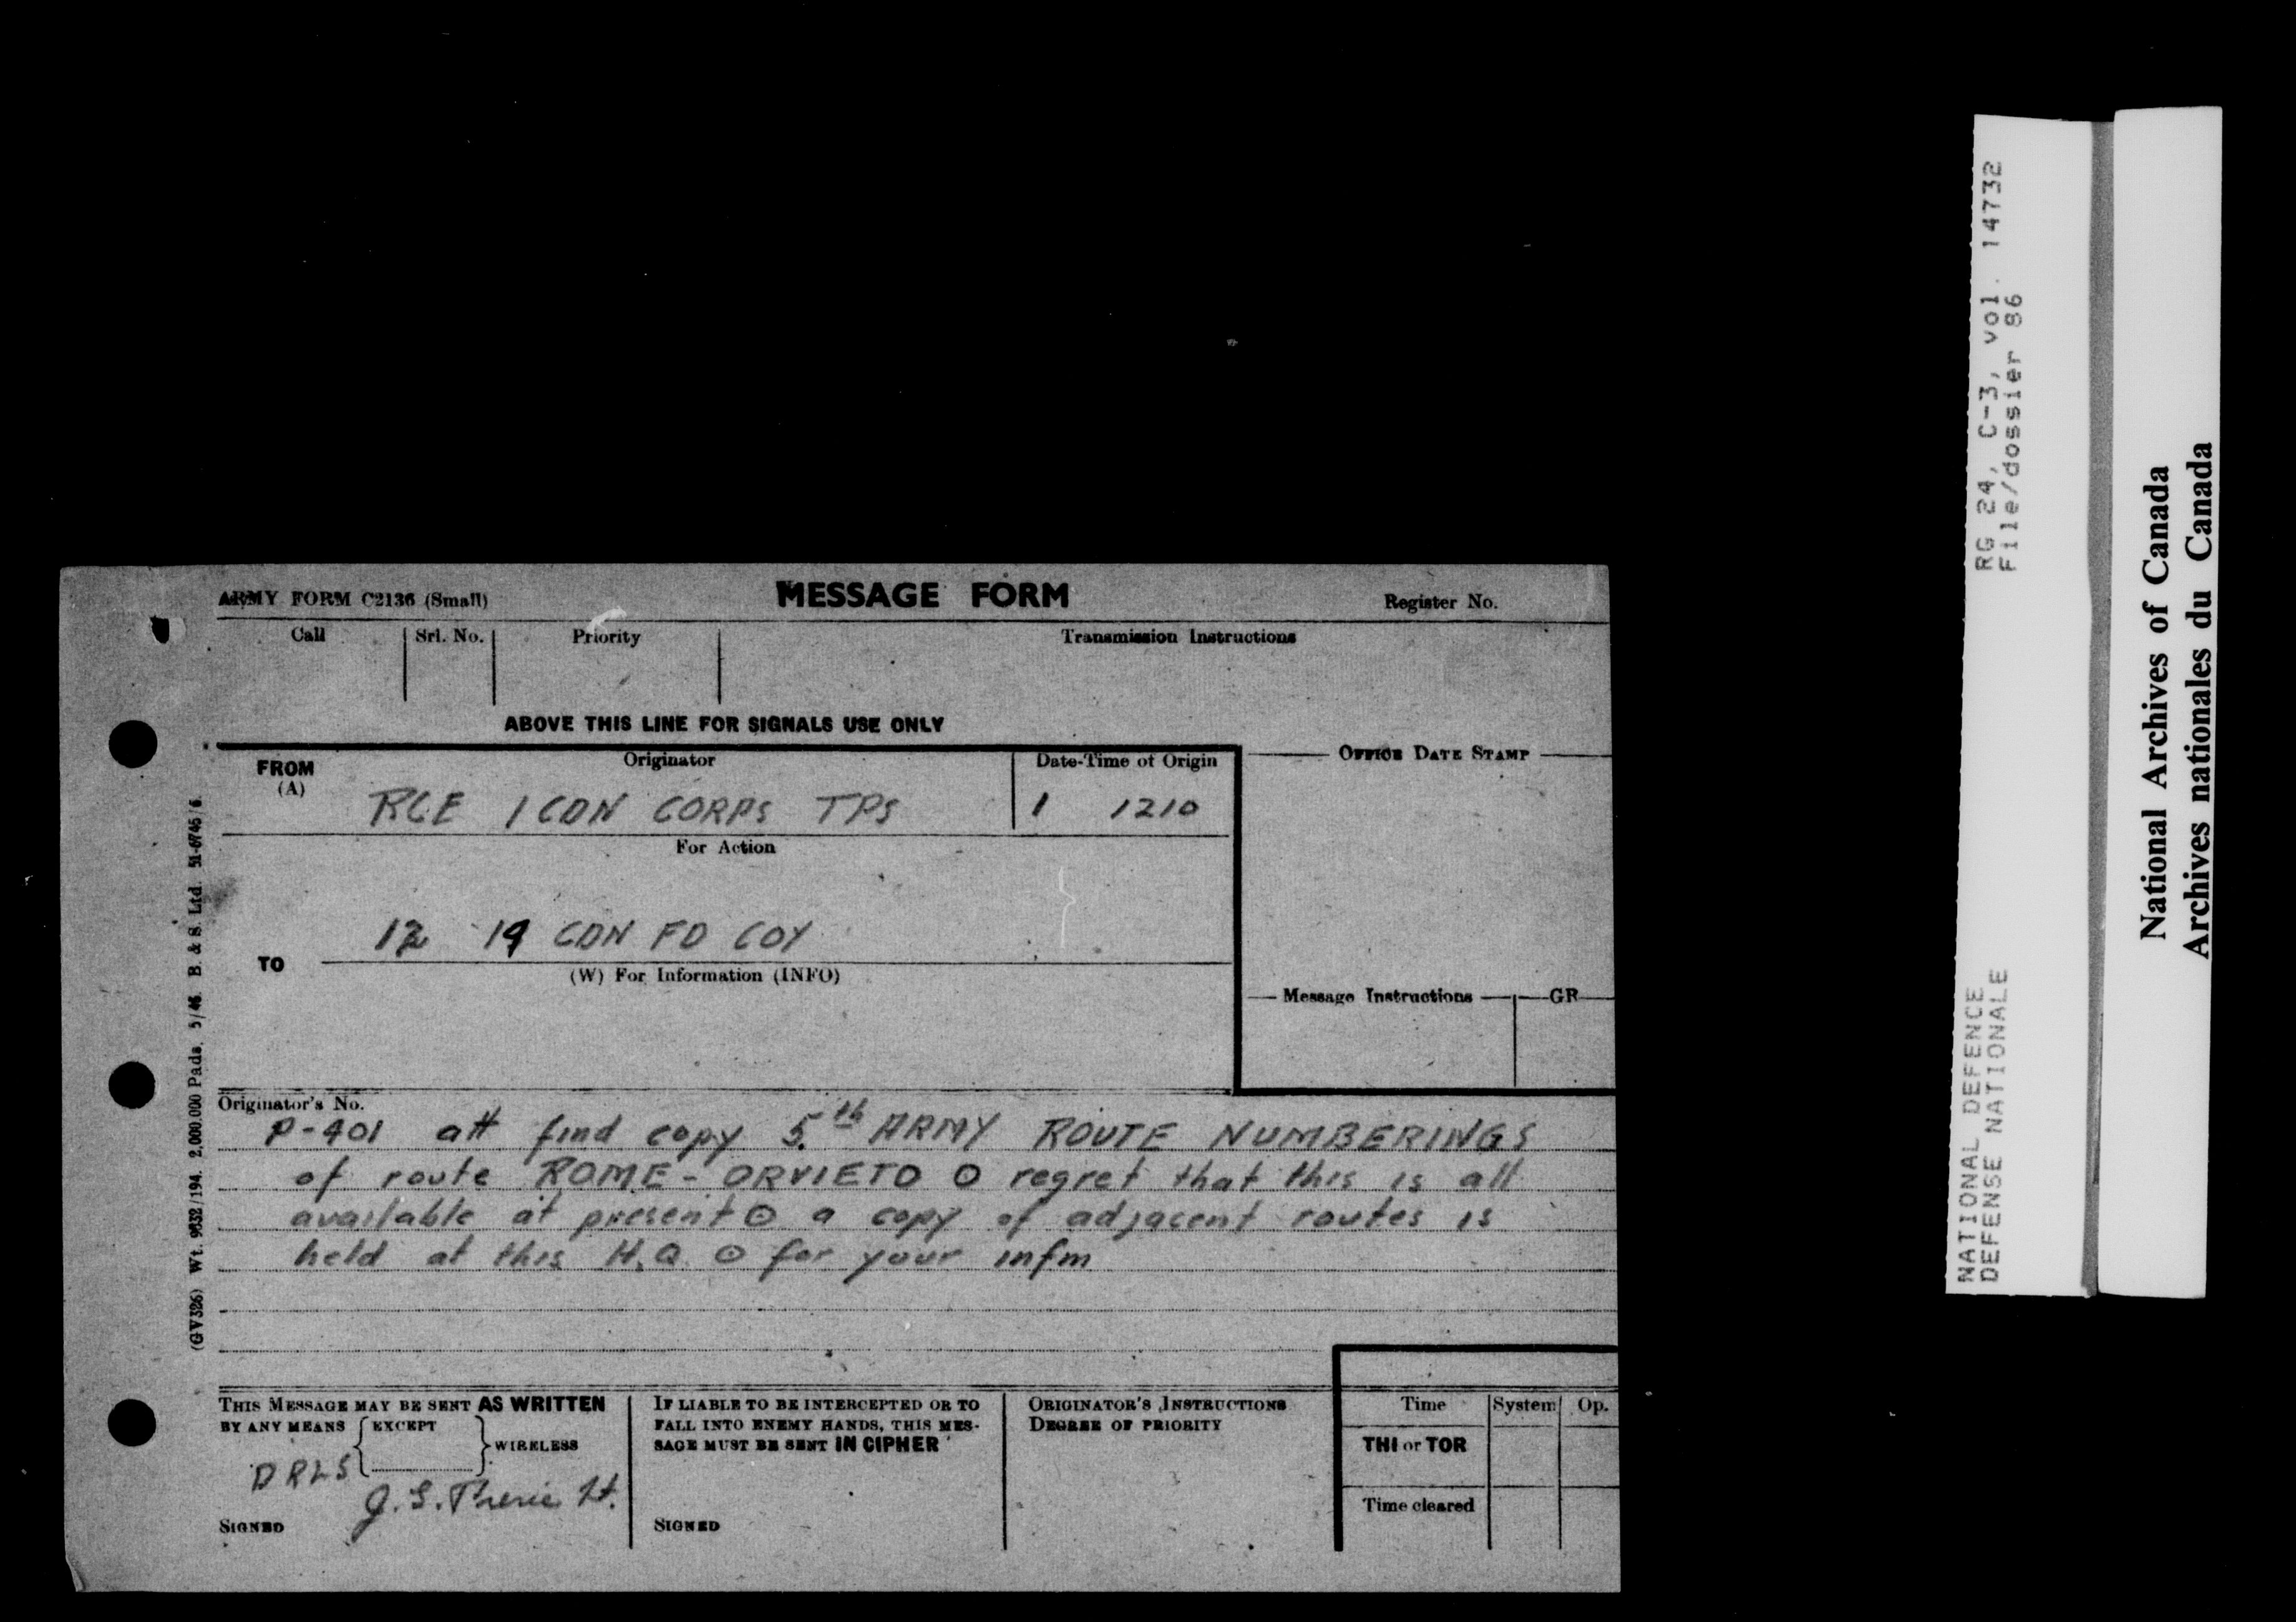 ARMY FORM C2136 (Small)
MESSAGE FORM
Register No.
Call
Srl. No.
Priority
Transmission Instructions
ABOVE THIS LINE FOR SIGNALS USE ONLY
FROM
(A)
Originator
Date-Time of Origin
OFFICE DATE STAMP
RCE 1 CDN CORPS TPS
1 1210
For Action
12 19 CDN FD COY
TO
(W) For Information (INFO)
Message Instructions
GR
Originator's No.
P-401 att find copy 5th ARMY ROUTE NUMBERINGS
of route ROME - ORVIETO ⊙ regret that this is all
available at present ⊙ a copy of adjacent routes is
held at this H.Q. ⊙ for your infm
THIS MESSAGE MAY BE SENT AS WRITTEN
BY ANY MEANS { EXCEPT } WIRELESS
DRLS
SIGNED
J. Lt.
IF LIABLE TO BE INTERCEPTED OR TO
FALL INTO ENEMY HANDS, THIS MES-
SAGE MUST BE SENT IN CIPHER
SIGNED
ORIGINATOR'S INSTRUCTIONS
DEGREE OF PRIORITY
Time
System
Op.
THI or TOR
Time cleared
(GV326) Wt. 9832/194. 2,000,000 Pads. 5/46. B. & S. Ltd.
RG 24, C-3, vol. 14732
File/dossier 86
NATIONAL DEFENCE
DEFENSE NATIONALE
National Archives of Canada
Archives nationales du Canada